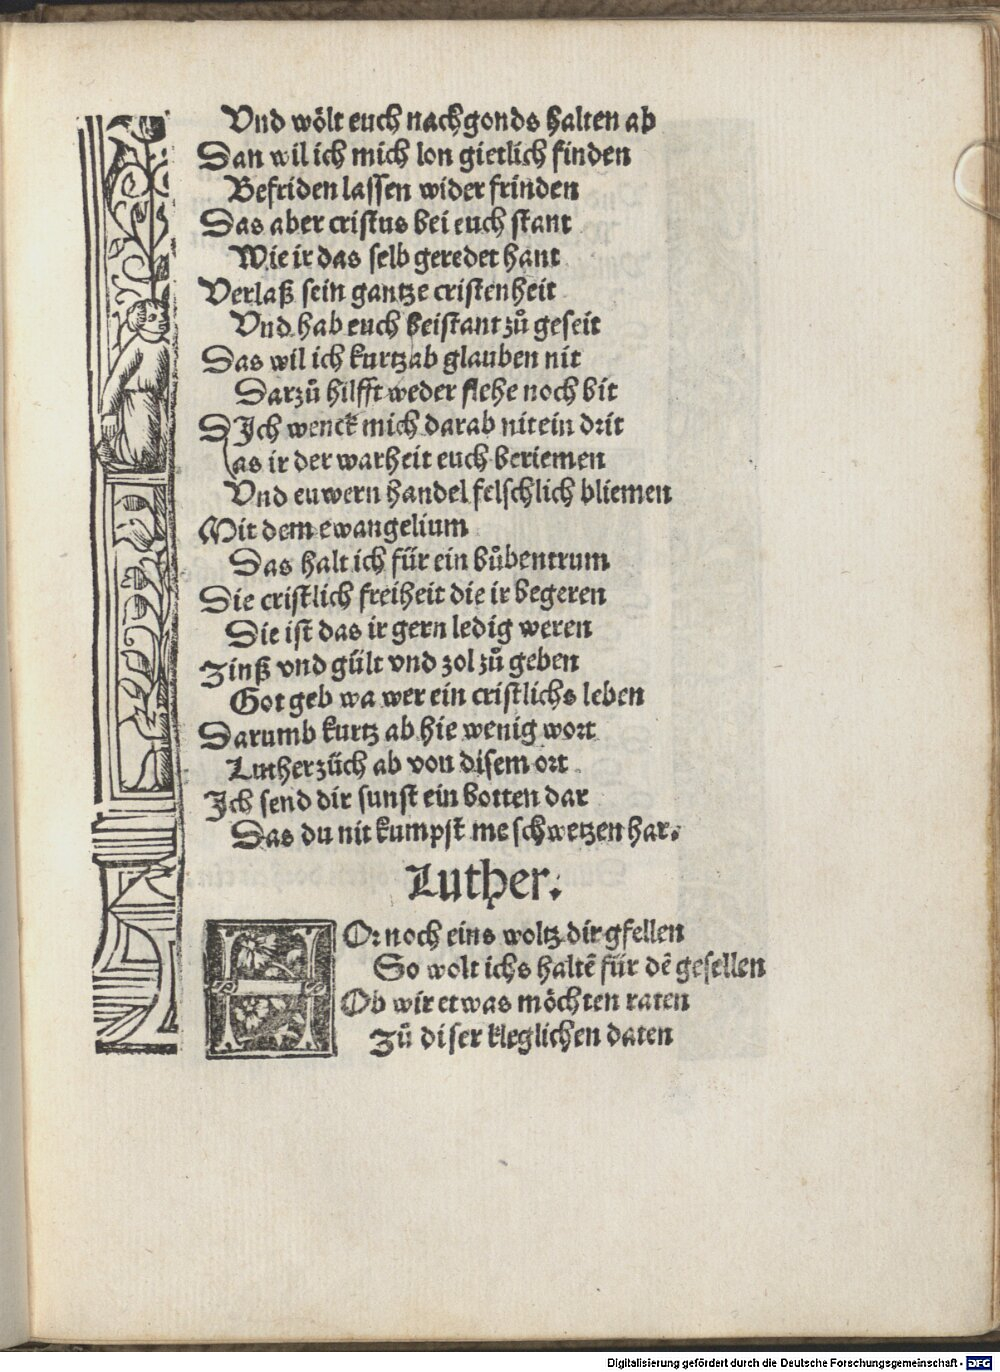 Vnd wölt euch nachgonds halten ab
Dan wil ich mich lon gietlich finden
Befriden lassen wider frinden
Das aber cristus bei euch stant
Wie ir das selb geredet hant
Verlaß sein gantze cristenheit
Vnd hab euch beistant zů geseit
Das wil ich kurtz ab glauben nit
Darzů hilfft weder flehe noch bit
D Ich wenck mich darab nit ein drit
as ir der warheit euch beriemen
Vnd euwern handel felschlich bliemen
Mit dem ewangelium
Das halt ich für ein bůbentrum
Die cristlich freiheit die ir begeren
Die ist das ir gern ledig weren
Zinß vnd gült vnd zol zů geben
Got geb wa wer ein cristlichs leben
Darumb kurtz ab hie wenig wort
Luther züch ab von disem ort
Ich send dir sunst ein botten dar
Das du nit kumpst me schwetzen har.
Luther.
HOr noch eins woltz dir gfellen
So wolt ichs haltē für dē gesellen
Ob wir etwas möchten raten
Zů diser kleglichen daten
Digitalisierung gefördert durch die Deutsche Forschungsgemeinschaft - DFG